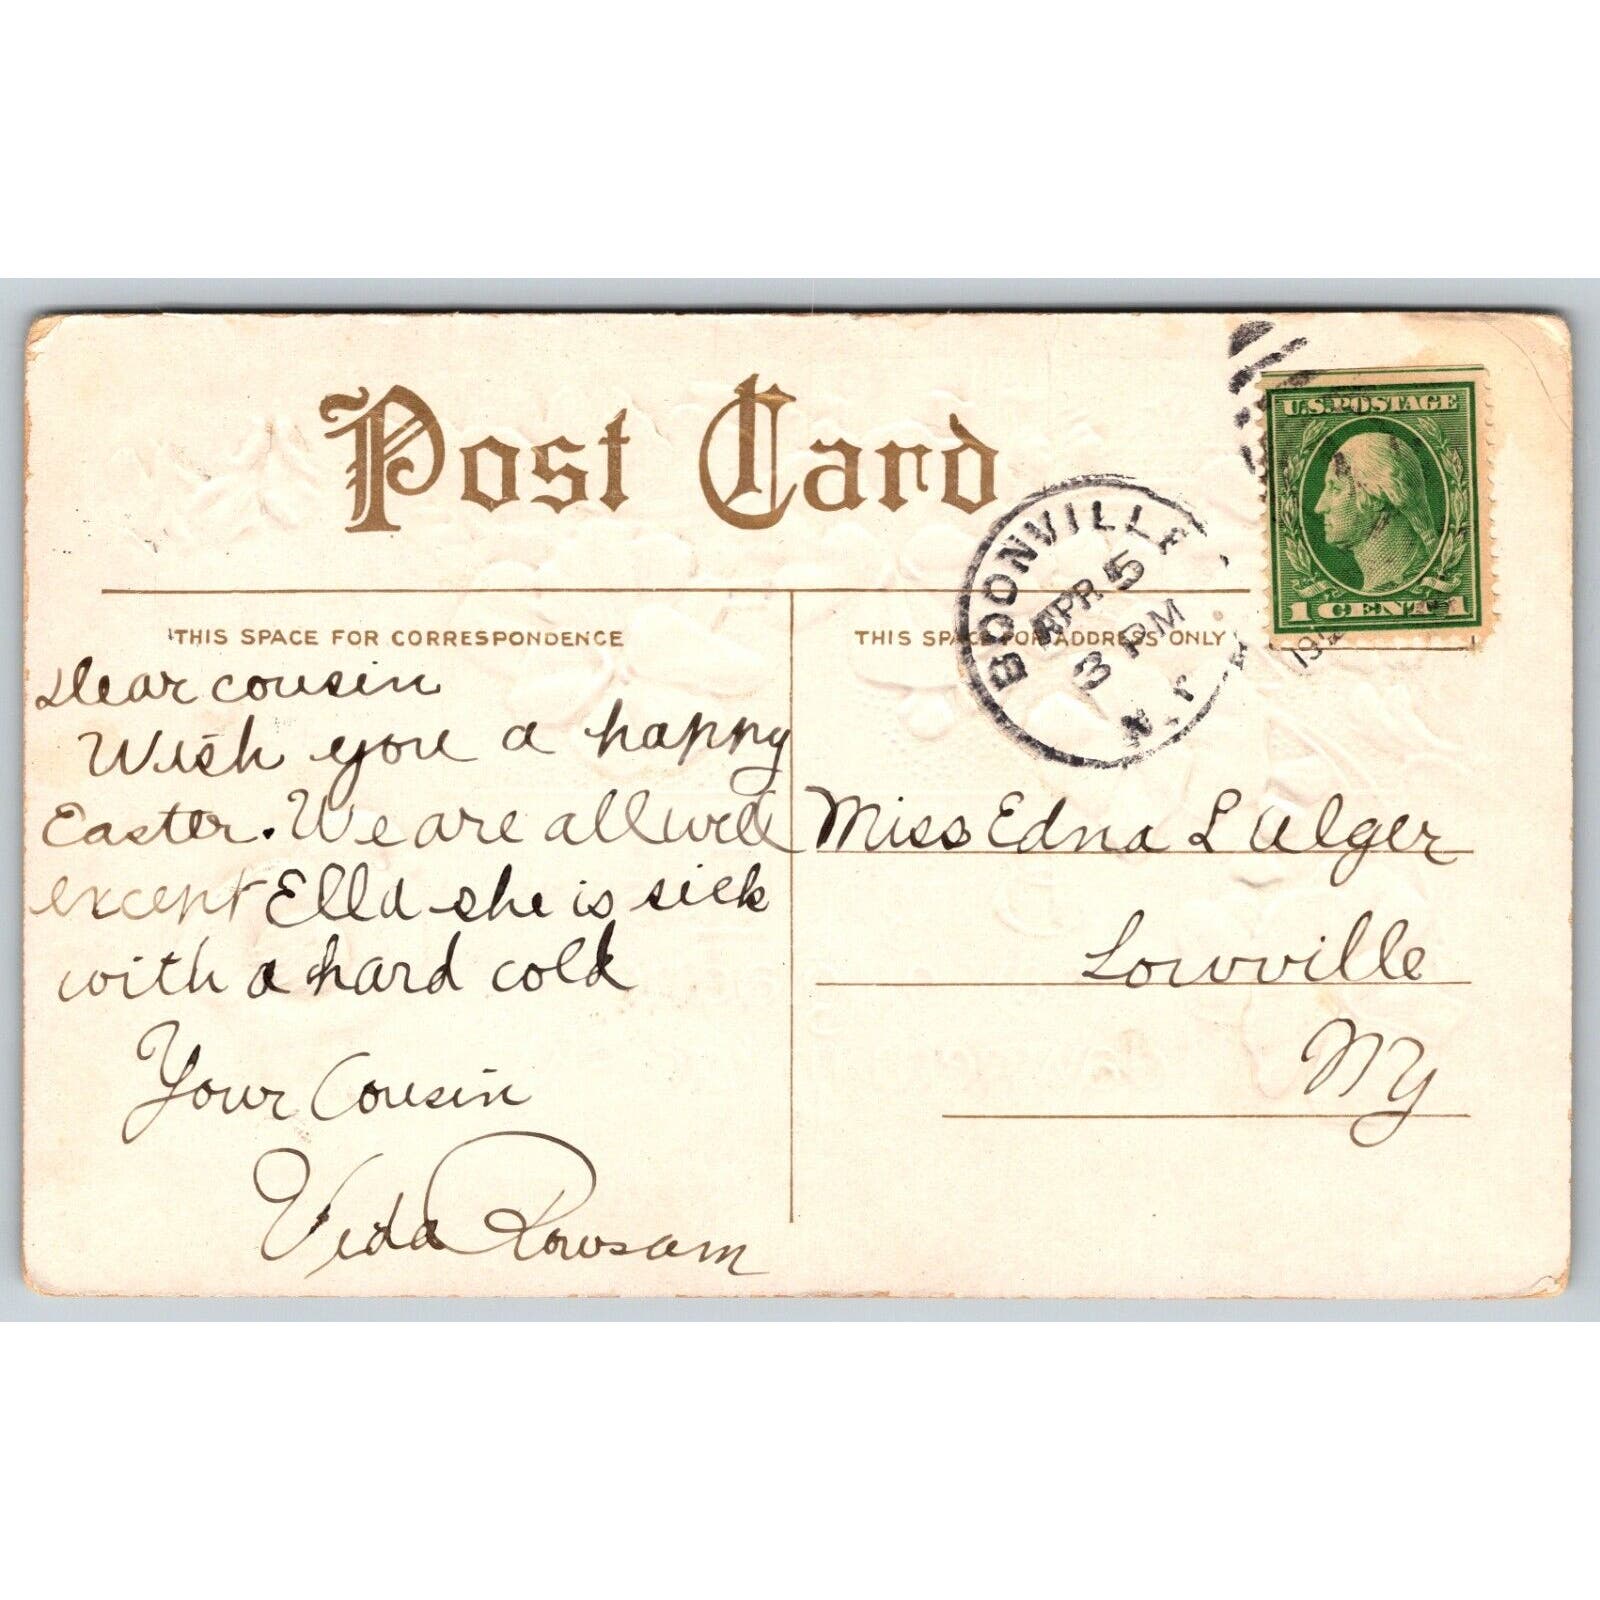 Post Card
THIS SPACE FOR CORRESPONDENCE
THIS SPACE FOR ADDRESS ONLY
BOONVILLE
APR 5
3 PM
N.Y.
U.S. POSTAGE
1 CENT 1
Dear cousin
Wish you a happy
Easter. We are all well
except Ella she is sick
with a hard cold
Your Cousin
Vida Rowsam
Miss Edna L Alger
Lowville
NY